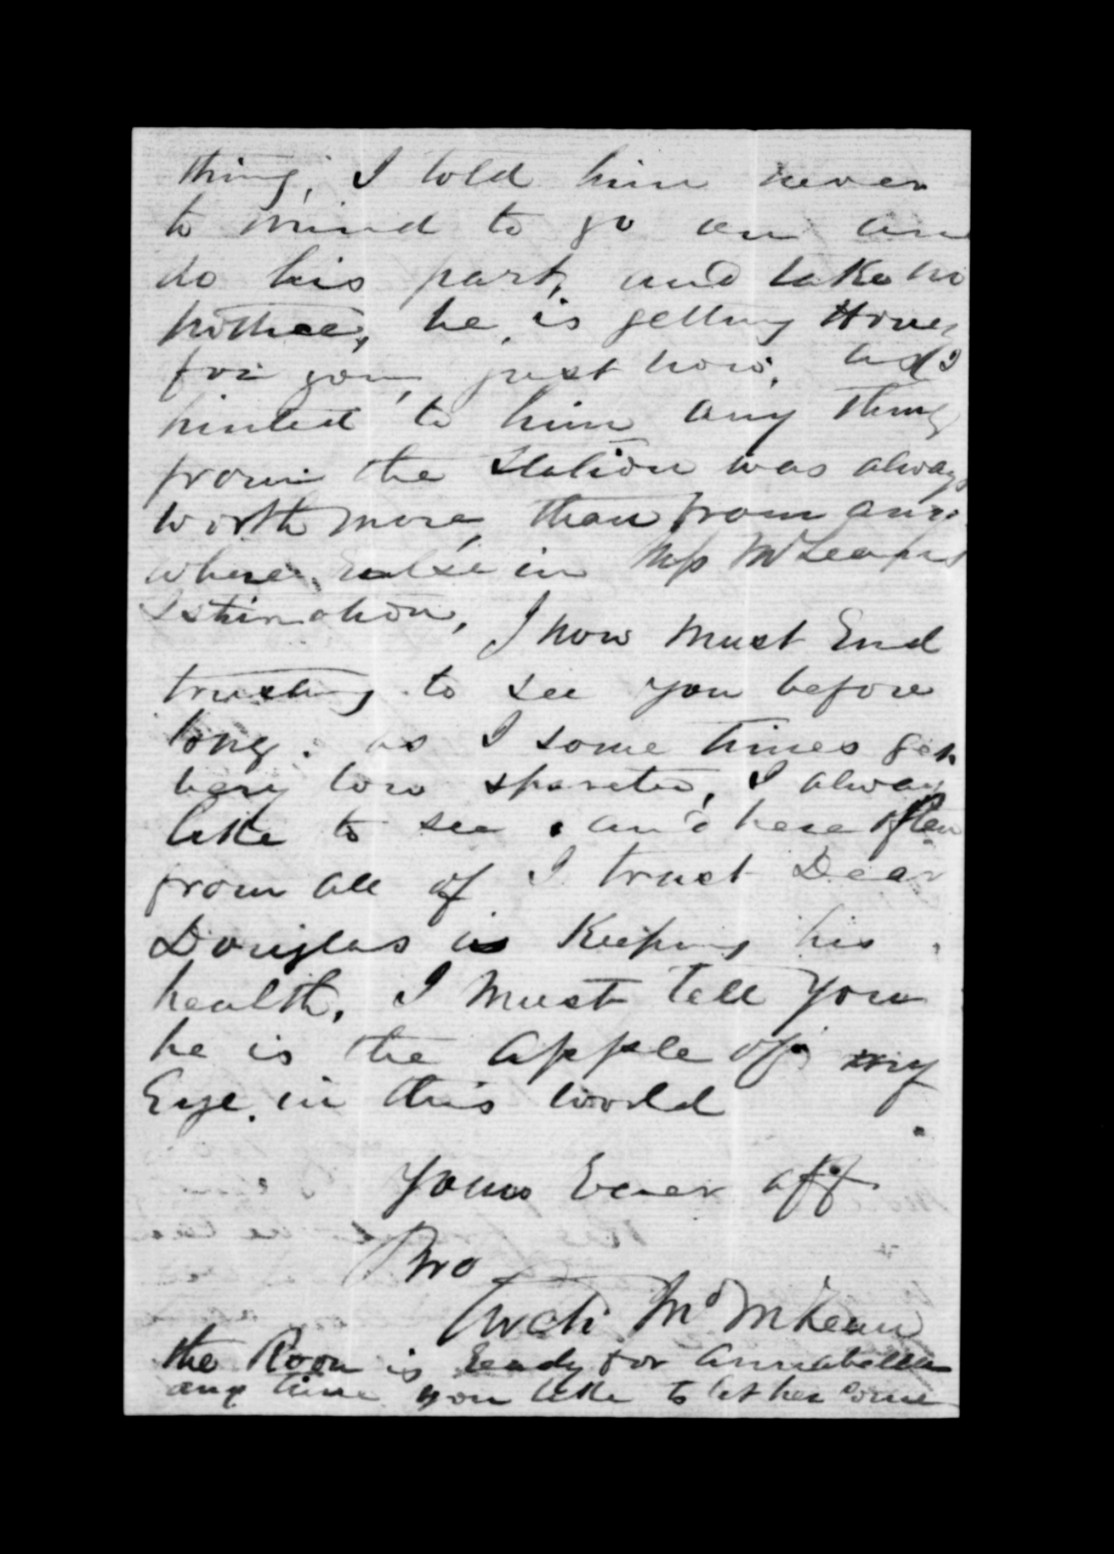 thing, I told him never
to mind to go on an
do his part, and take no
nothice, he is getting
for you, just now, and I
hinted to him any thing
from the Station was always
worth more, than from any
where, in McLean's
Istimation, I now must End
trusting to see you before
long: as I some times get
very low sparets, I alway
like to see and here often
from all of I trust Dear
Douglas is Keeping his
health, I must tell you
he is the apple of my
Eye, in this world
Yours Ever aff
Bro
Archi McLean
the Room is Ready for Annabella
any time you like to let her come